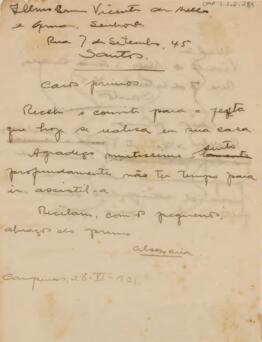 Illmo Snr Vicente de Mello
e Exma. Senhora
Rua 7 de Setembro, 45
Santos.
Caros primos.
Recebi o convite para a festa
que hoje se realisa em sua casa
Agradeço muitissimo sinto
profundamente não ter tempo para
ir assistil-a.
Recebam, com os pequenos,
abraços do primo
Campinas, 28-VI-921